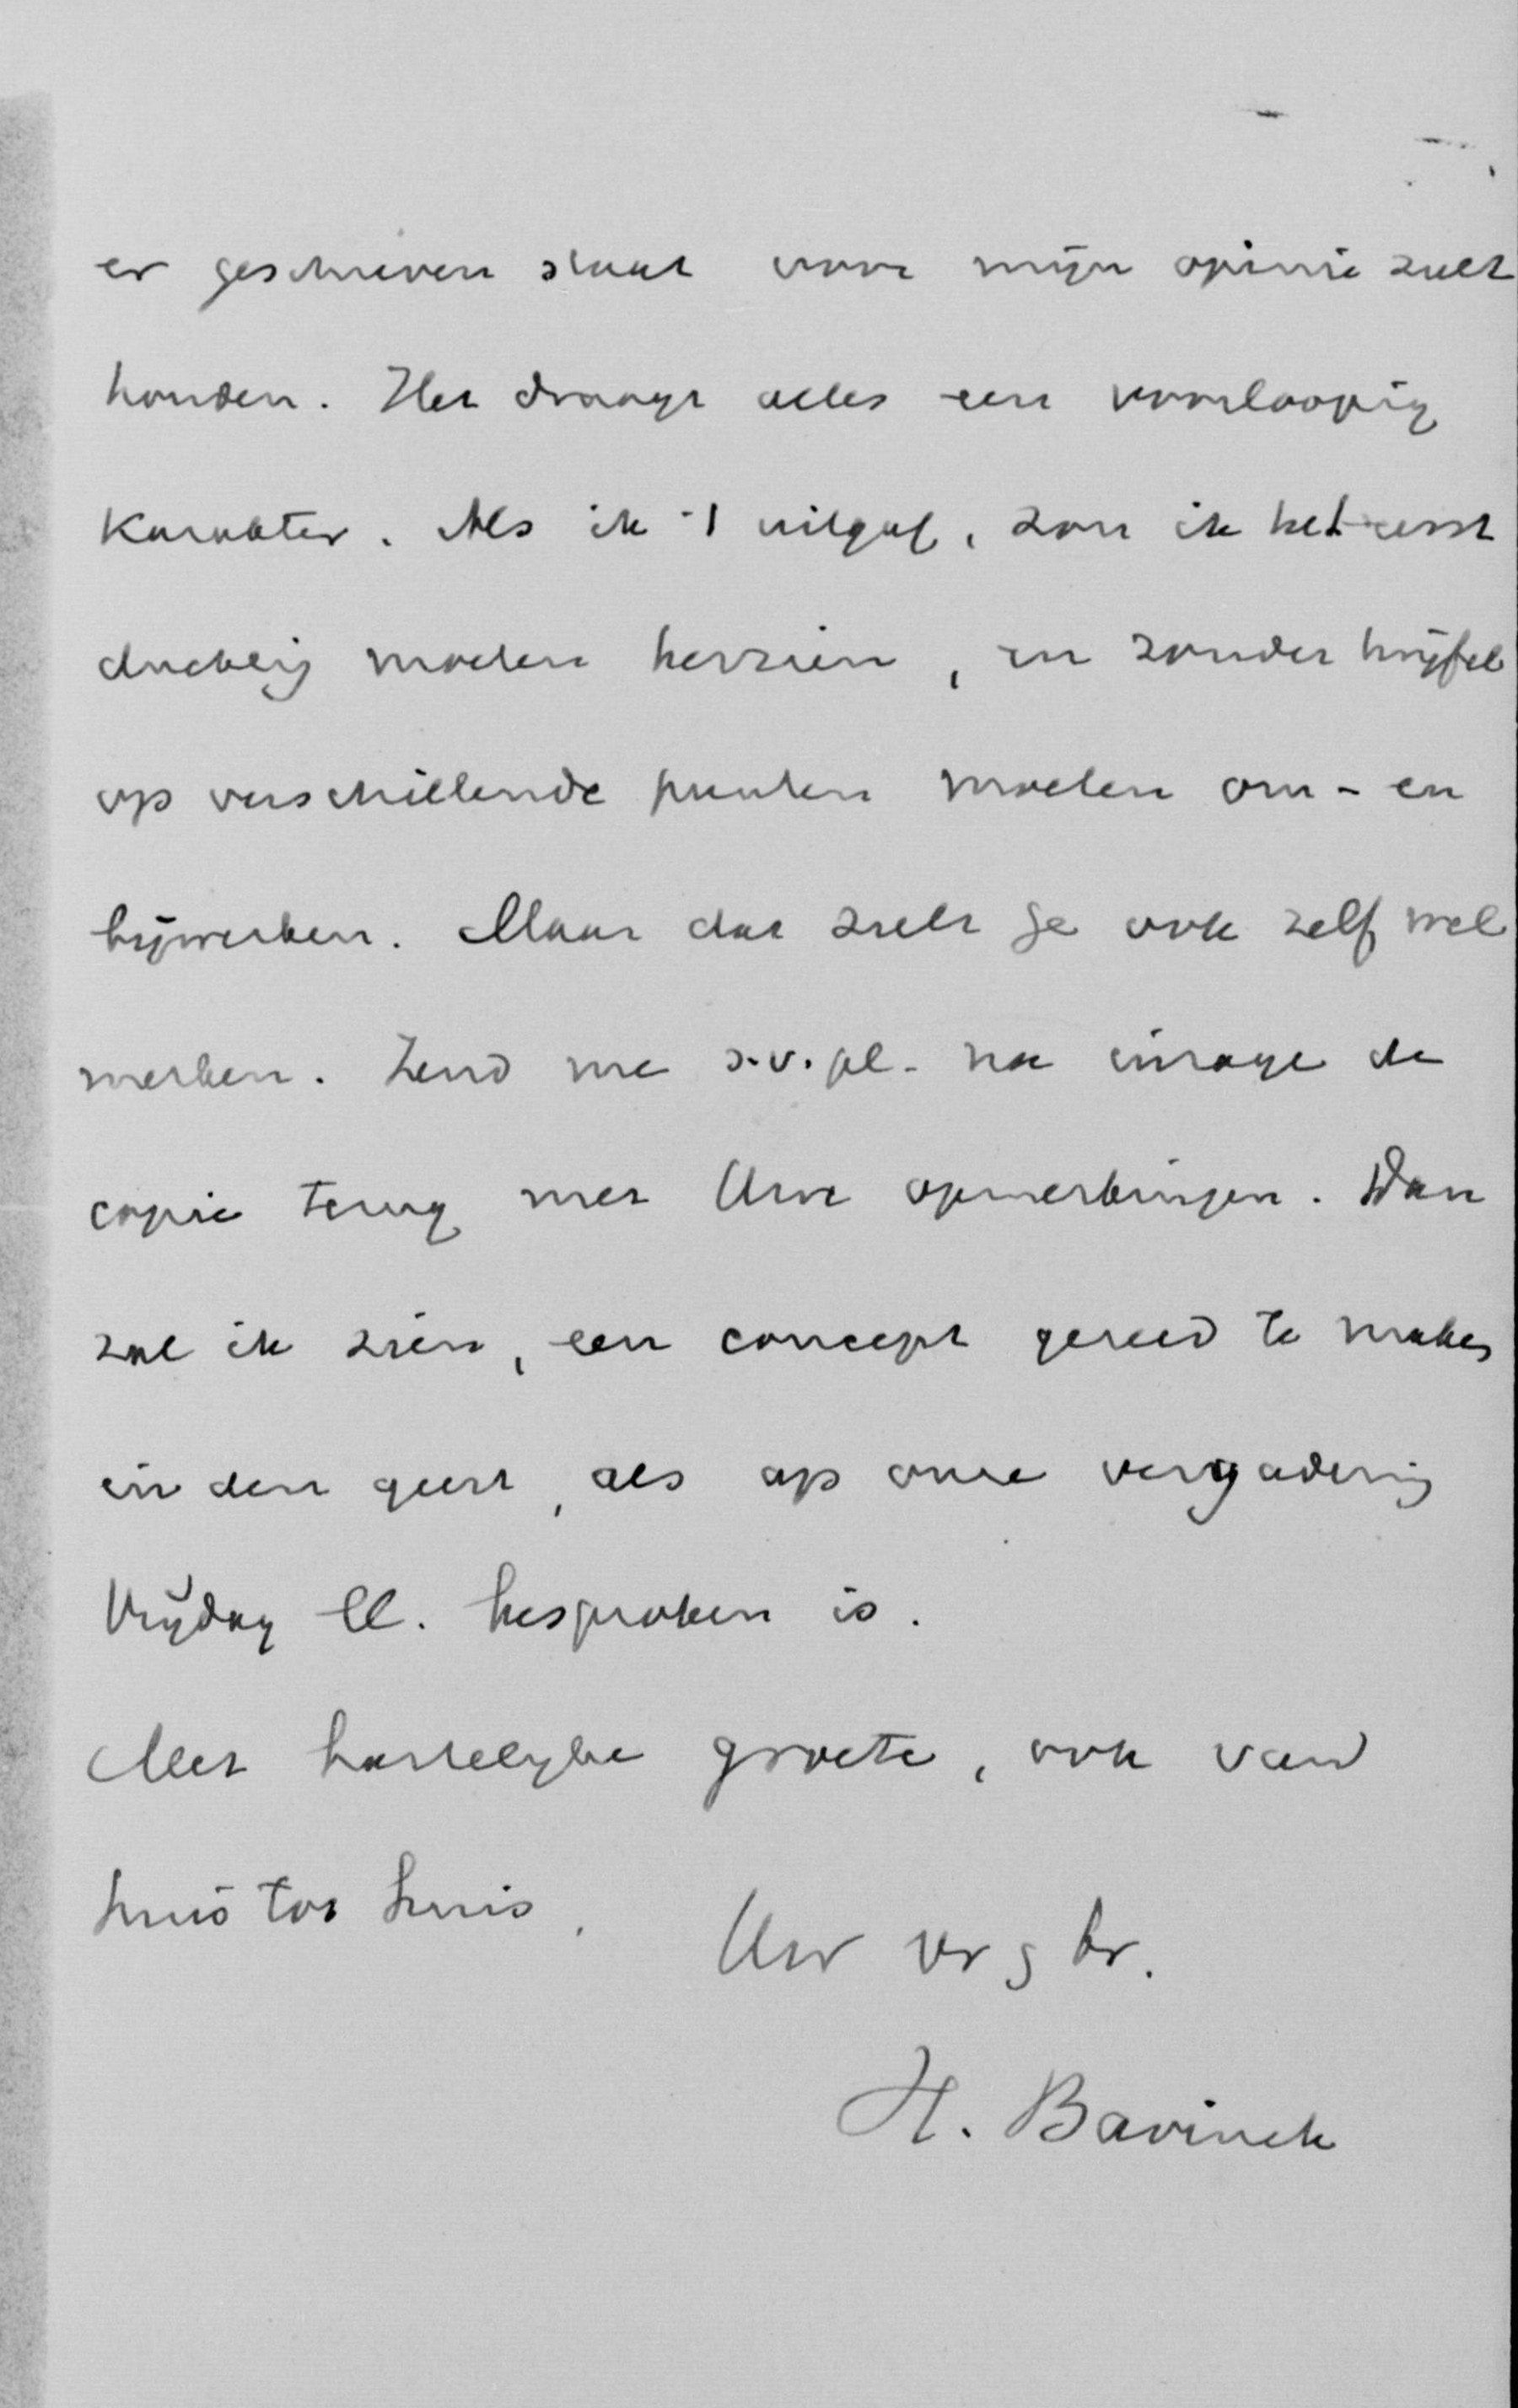 er geschreven staat voor mijn opinie zult
houden. Het draagt alles een voorloopig
karakter. Als ik 't uitgaf, zou ik het eerst
duchtig moeten herzien, en zonder twijfel
op verschillende punten moeten om- en
bijwerken. Maar dat zult ge ook zelf wel
merken. Zend me s.v.pl. na inzage de
copie terug met Uwe opmerkingen. Dan
zal ik zien, een concept gereed te maken
in den geest, als op onze vergadering
Vrijdag ll. besproken is.
Met hartelijke groete, ook van
huis tot huis.
Uw vr g br.
H. Bavinck